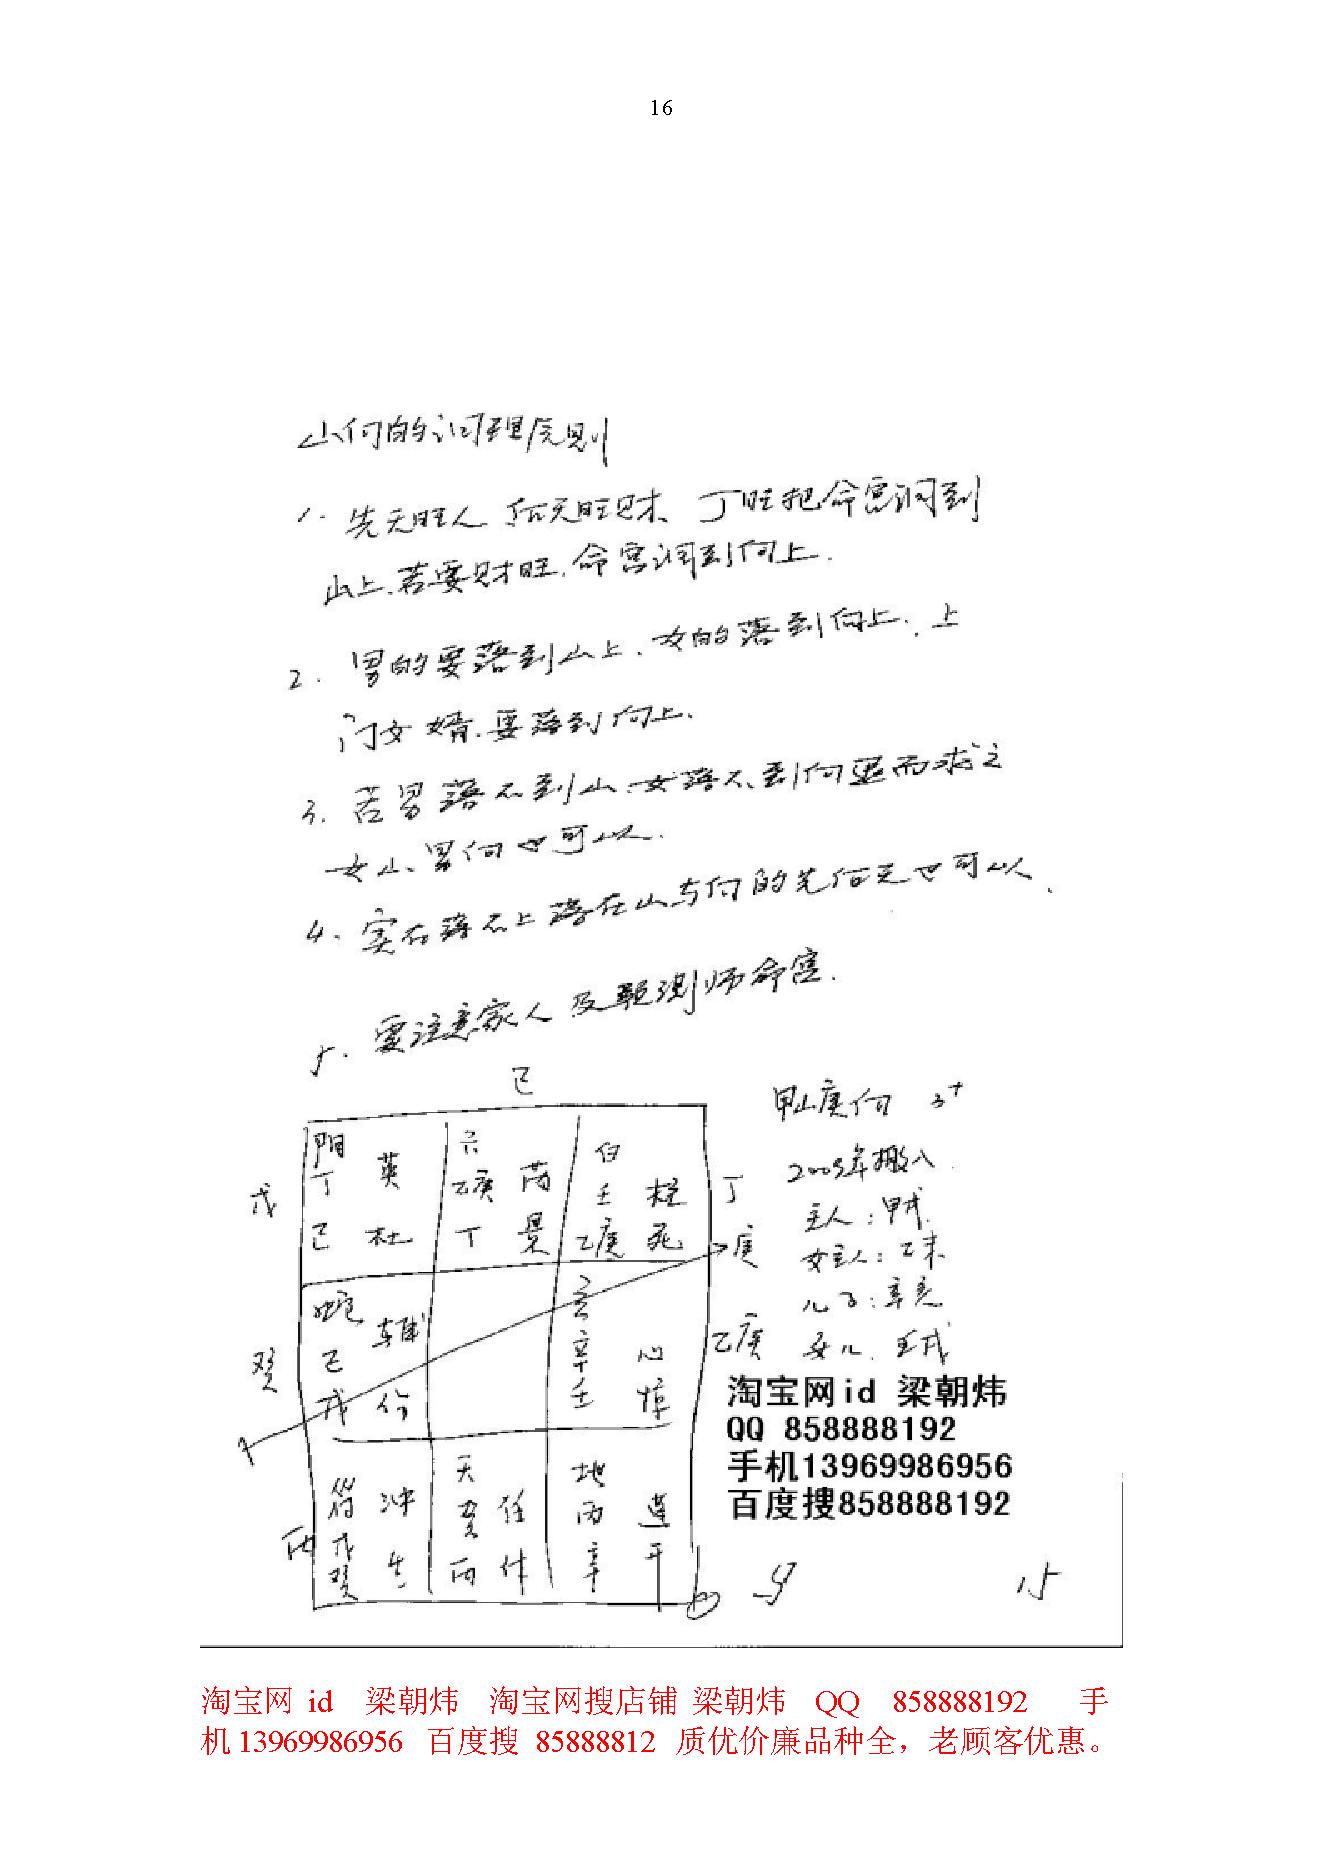 16
山向的调理原则
1. 先天旺人 后天旺财、丁旺把命宫调到
山上、若要财旺、命宫调到向上.
2. 男的要落到山上、女的落到向上、上
门女婿、要落到向上.
3. 若男落不到山、女落不到向退而求之
女山、男向也可以.
4. 实在落不上落在山与向的先后天也可以、
5. 要注意家人及预测师命宫.
己
甲山庚向
2005年搬入
主人：甲戌
女主人：乙未
儿子：辛亥
女儿、壬戌
阳 六 白
丁 英 乙庚 芮 壬 柱
己 杜 丁 景 乙庚 死
戊 丁
庚
蛇 辅 玄
己 辛 心
戊 伤 壬 惊
癸 乙庚
符 冲 天 地 蓬
戊 癸 任 丙
癸 生 丙 休 辛 开
丙
淘宝网id 梁朝炜
QQ 858888192
手机13969986956
百度搜858888192
15
淘宝网 id 梁朝炜 淘宝网搜店铺 梁朝炜 QQ 858888192 手
机 13969986956 百度搜 85888812 质优价廉品种全，老顾客优惠。